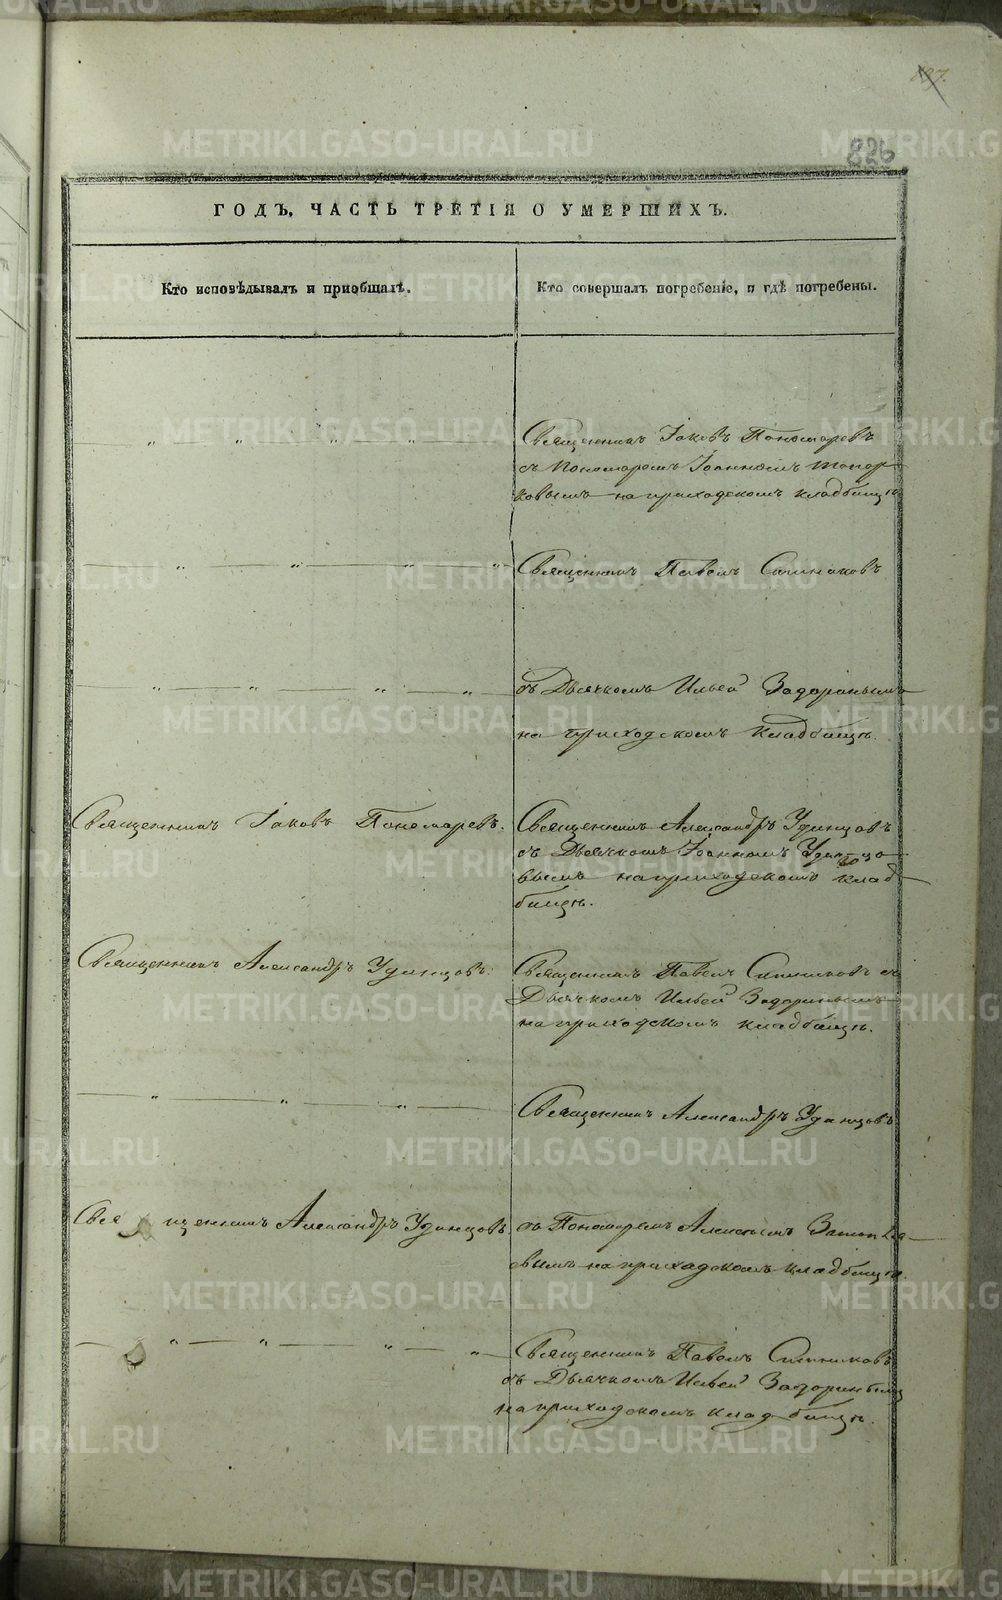 897.
826
ГОДЪ, ЧАСТЬ ТРЕТІЯ О УМЕРШИХЪ.
Кто исповѣдывалъ и пріобщалъ.
Кто совершалъ погребеніе, и гдѣ погребены.
Священникъ Іаковъ Пономаревъ
съ Пономаремъ Іоанномъ Топор
ковымъ на приходскомъ кладбищѣ
Священникъ Павелъ
съ Дьячкомъ Ильей Задоринымъ
на приходскомъ кладбищѣ.
Священникъ Іаковъ Пономаревъ.
Священникъ Александръ Удинцовъ
съ Дьячкомъ Іоанномъ Удинцо
вымъ на приходскомъ клад
бищѣ.
Священникъ Александръ Удинцовъ.
Священникъ Павелъ съ
Дьячкомъ Ильей Задоринымъ
на приходскомъ кладбищѣ.
Священникъ Александръ Удинцовъ
Священникъ Александръ Удинцовъ.
съ Пономаремъ Алексѣемъ
вымъ на приходскомъ кладбищѣ.
Священникъ Павелъ
съ Дьячкомъ Ильей Задоринымъ
на приходскомъ кладбищѣ.
METRIKI.GASO-URAL.RU